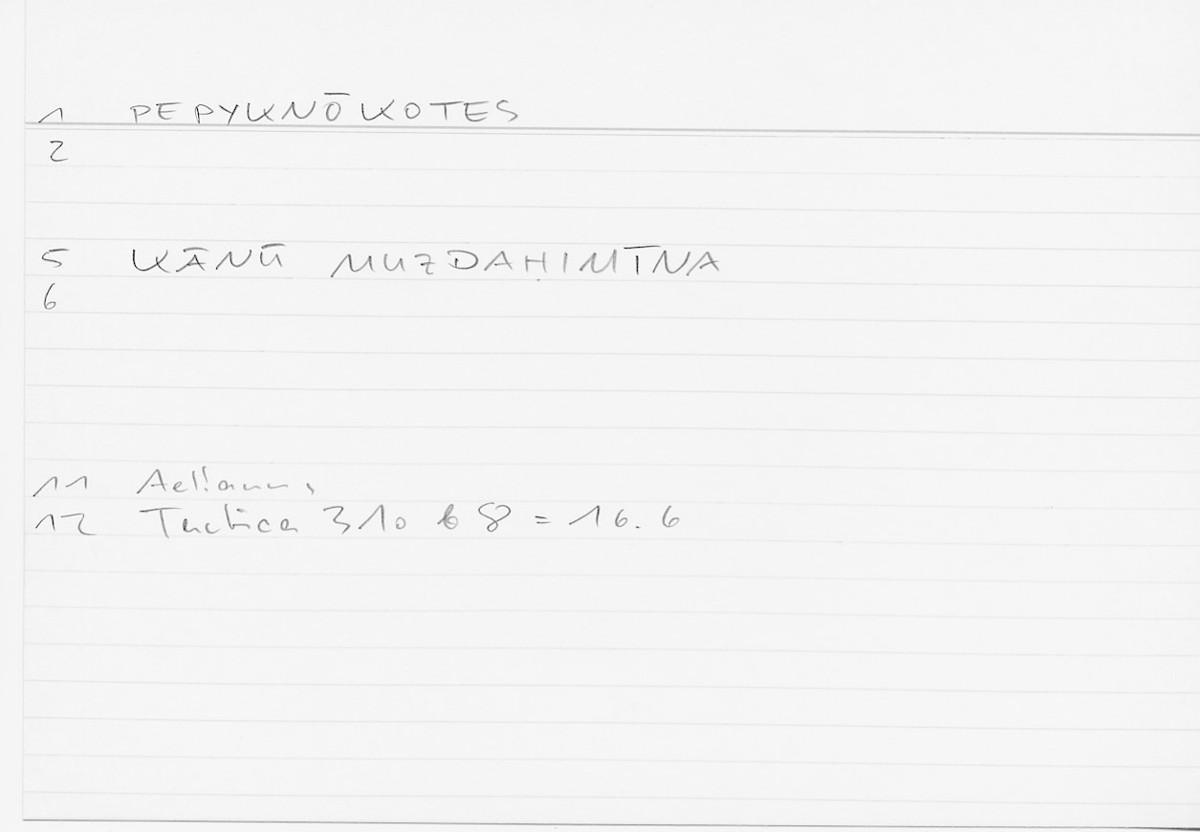 1 PEPYKNŌKOTES
2
5 KĀNŪ MUZDAḤIMĪNA
6
11 Aelianus,
12 Tactica 310 b 8 = 16.6